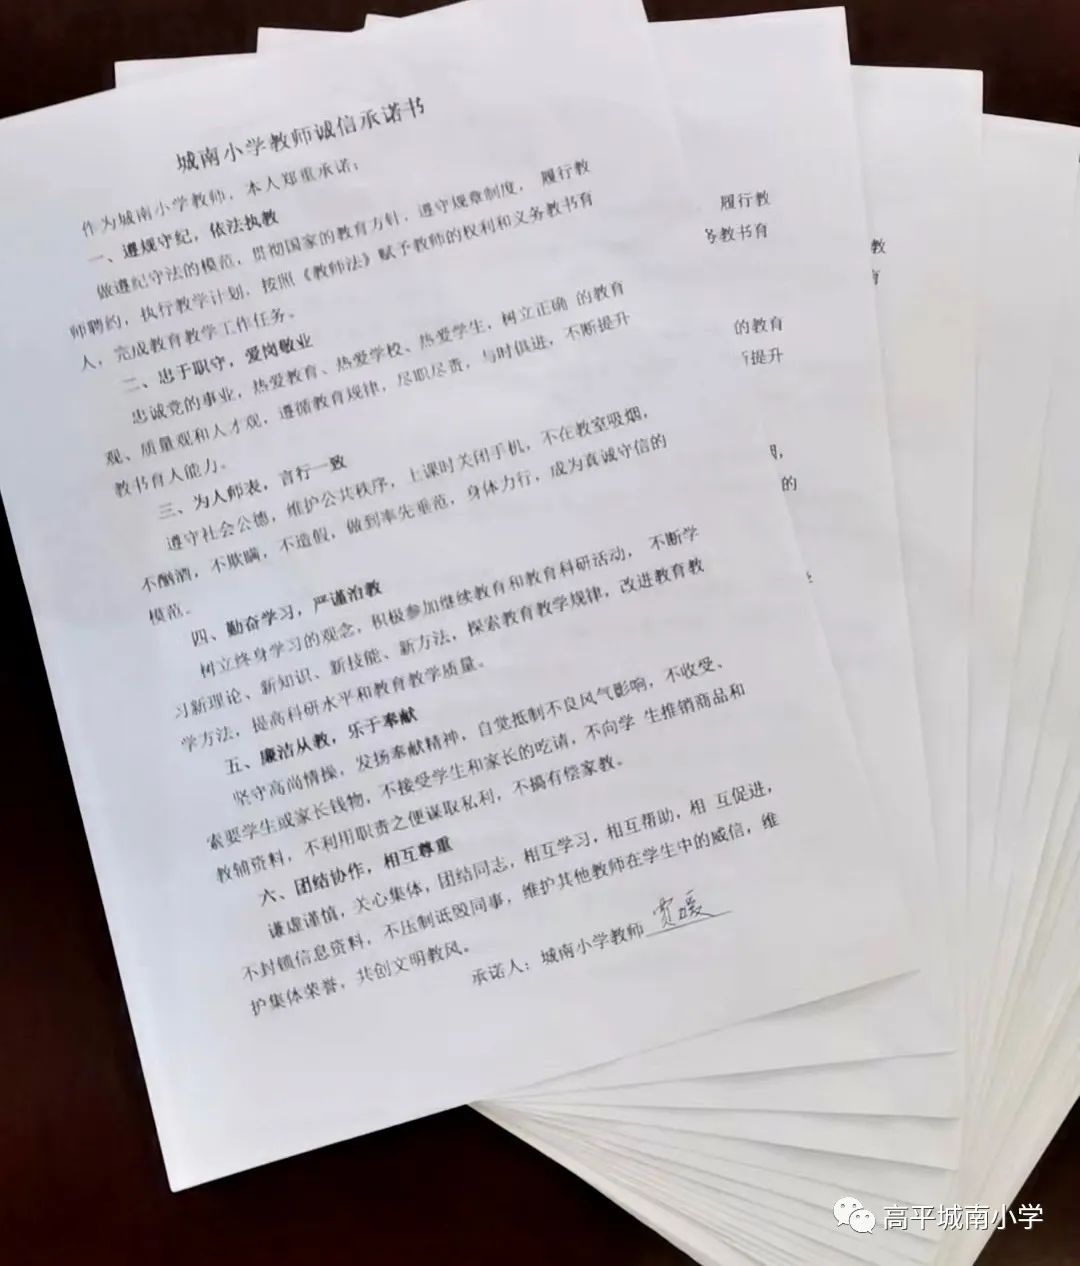 城南小学教师诚信承诺书
作为城南小学教师，本人郑重承诺：
一、遵规守纪，依法执教
做遵纪守法的模范，贯彻国家的教育方针，遵守规章制度， 履行教
师聘约，执行教学计划，按照《教师法》赋予教师的权利和义务教书育
人，完成教育教学工作任务。
二、忠于职守，爱岗敬业
忠诚党的事业，热爱教育、热爱学校、热爱学生，树立正确 的教育
观、质量观和人才观，遵循教育规律，尽职尽责，与时俱进，不断提升
教书育人能力。
三、为人师表，言行一致
遵守社会公德，维护公共秩序，上课时关闭手机，不在教室吸烟，
不酗酒，不欺瞒，不造假，做到率先垂范，身体力行，成为真诚守信的
模范。
四、勤奋学习，严谨治教
树立终身学习的观念，积极参加继续教育和教育科研活动， 不断学
习新理论、新知识、新技能、新方法，探索教育教学规律，改进教育教
学方法，提高科研水平和教育教学质量。
五、廉洁从教，乐于奉献
坚守高尚情操，发扬奉献精神，自觉抵制不良风气影响，不收受、
索要学生或家长钱物，不接受学生和家长的吃请，不向学 生推销商品和
教辅资料，不利用职责之便谋取私利，不搞有偿家教。
六、团结协作，相互尊重
谦虚谨慎，关心集体，团结同志，相互学习，相互帮助，相 互促进，
不封锁信息资料，不压制诋毁同事，维护其他教师在学生中的威信，维
护集体荣誉，共创文明教风。
承诺人：城南小学教师 贾媛
履行教
务教书育
的教育
断提升
烟，
的
学
教
育
高平城南小学